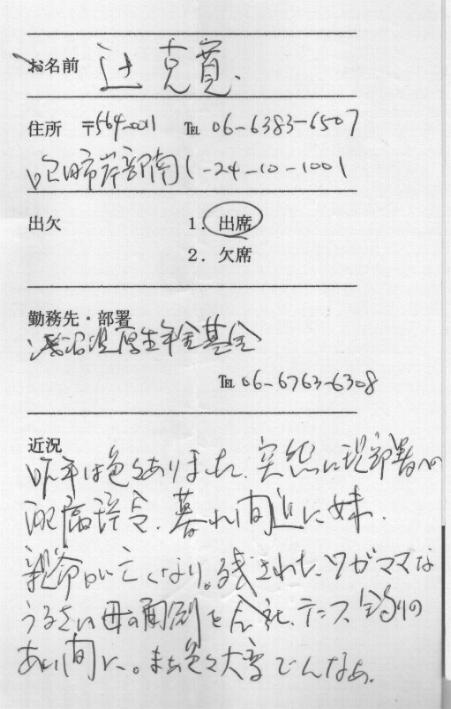 お名前 辻 克寛.
住所 〒564-0011 TEL 06-6383-6507
吹田市岸部南1-24-10-1001
出欠 1. 出席
2. 欠席
勤務先・部署
厚生年金基金
TEL 06-6763-6308
近況
昨年は色々ありました。突然に現部署への
配属辞令。暮れ間近に妹、
親命日に亡くなり。残された、ワガママな
うるさい母の面倒を会社、テニス、釣りの
あい間に。まあ色々大変でんなぁ。